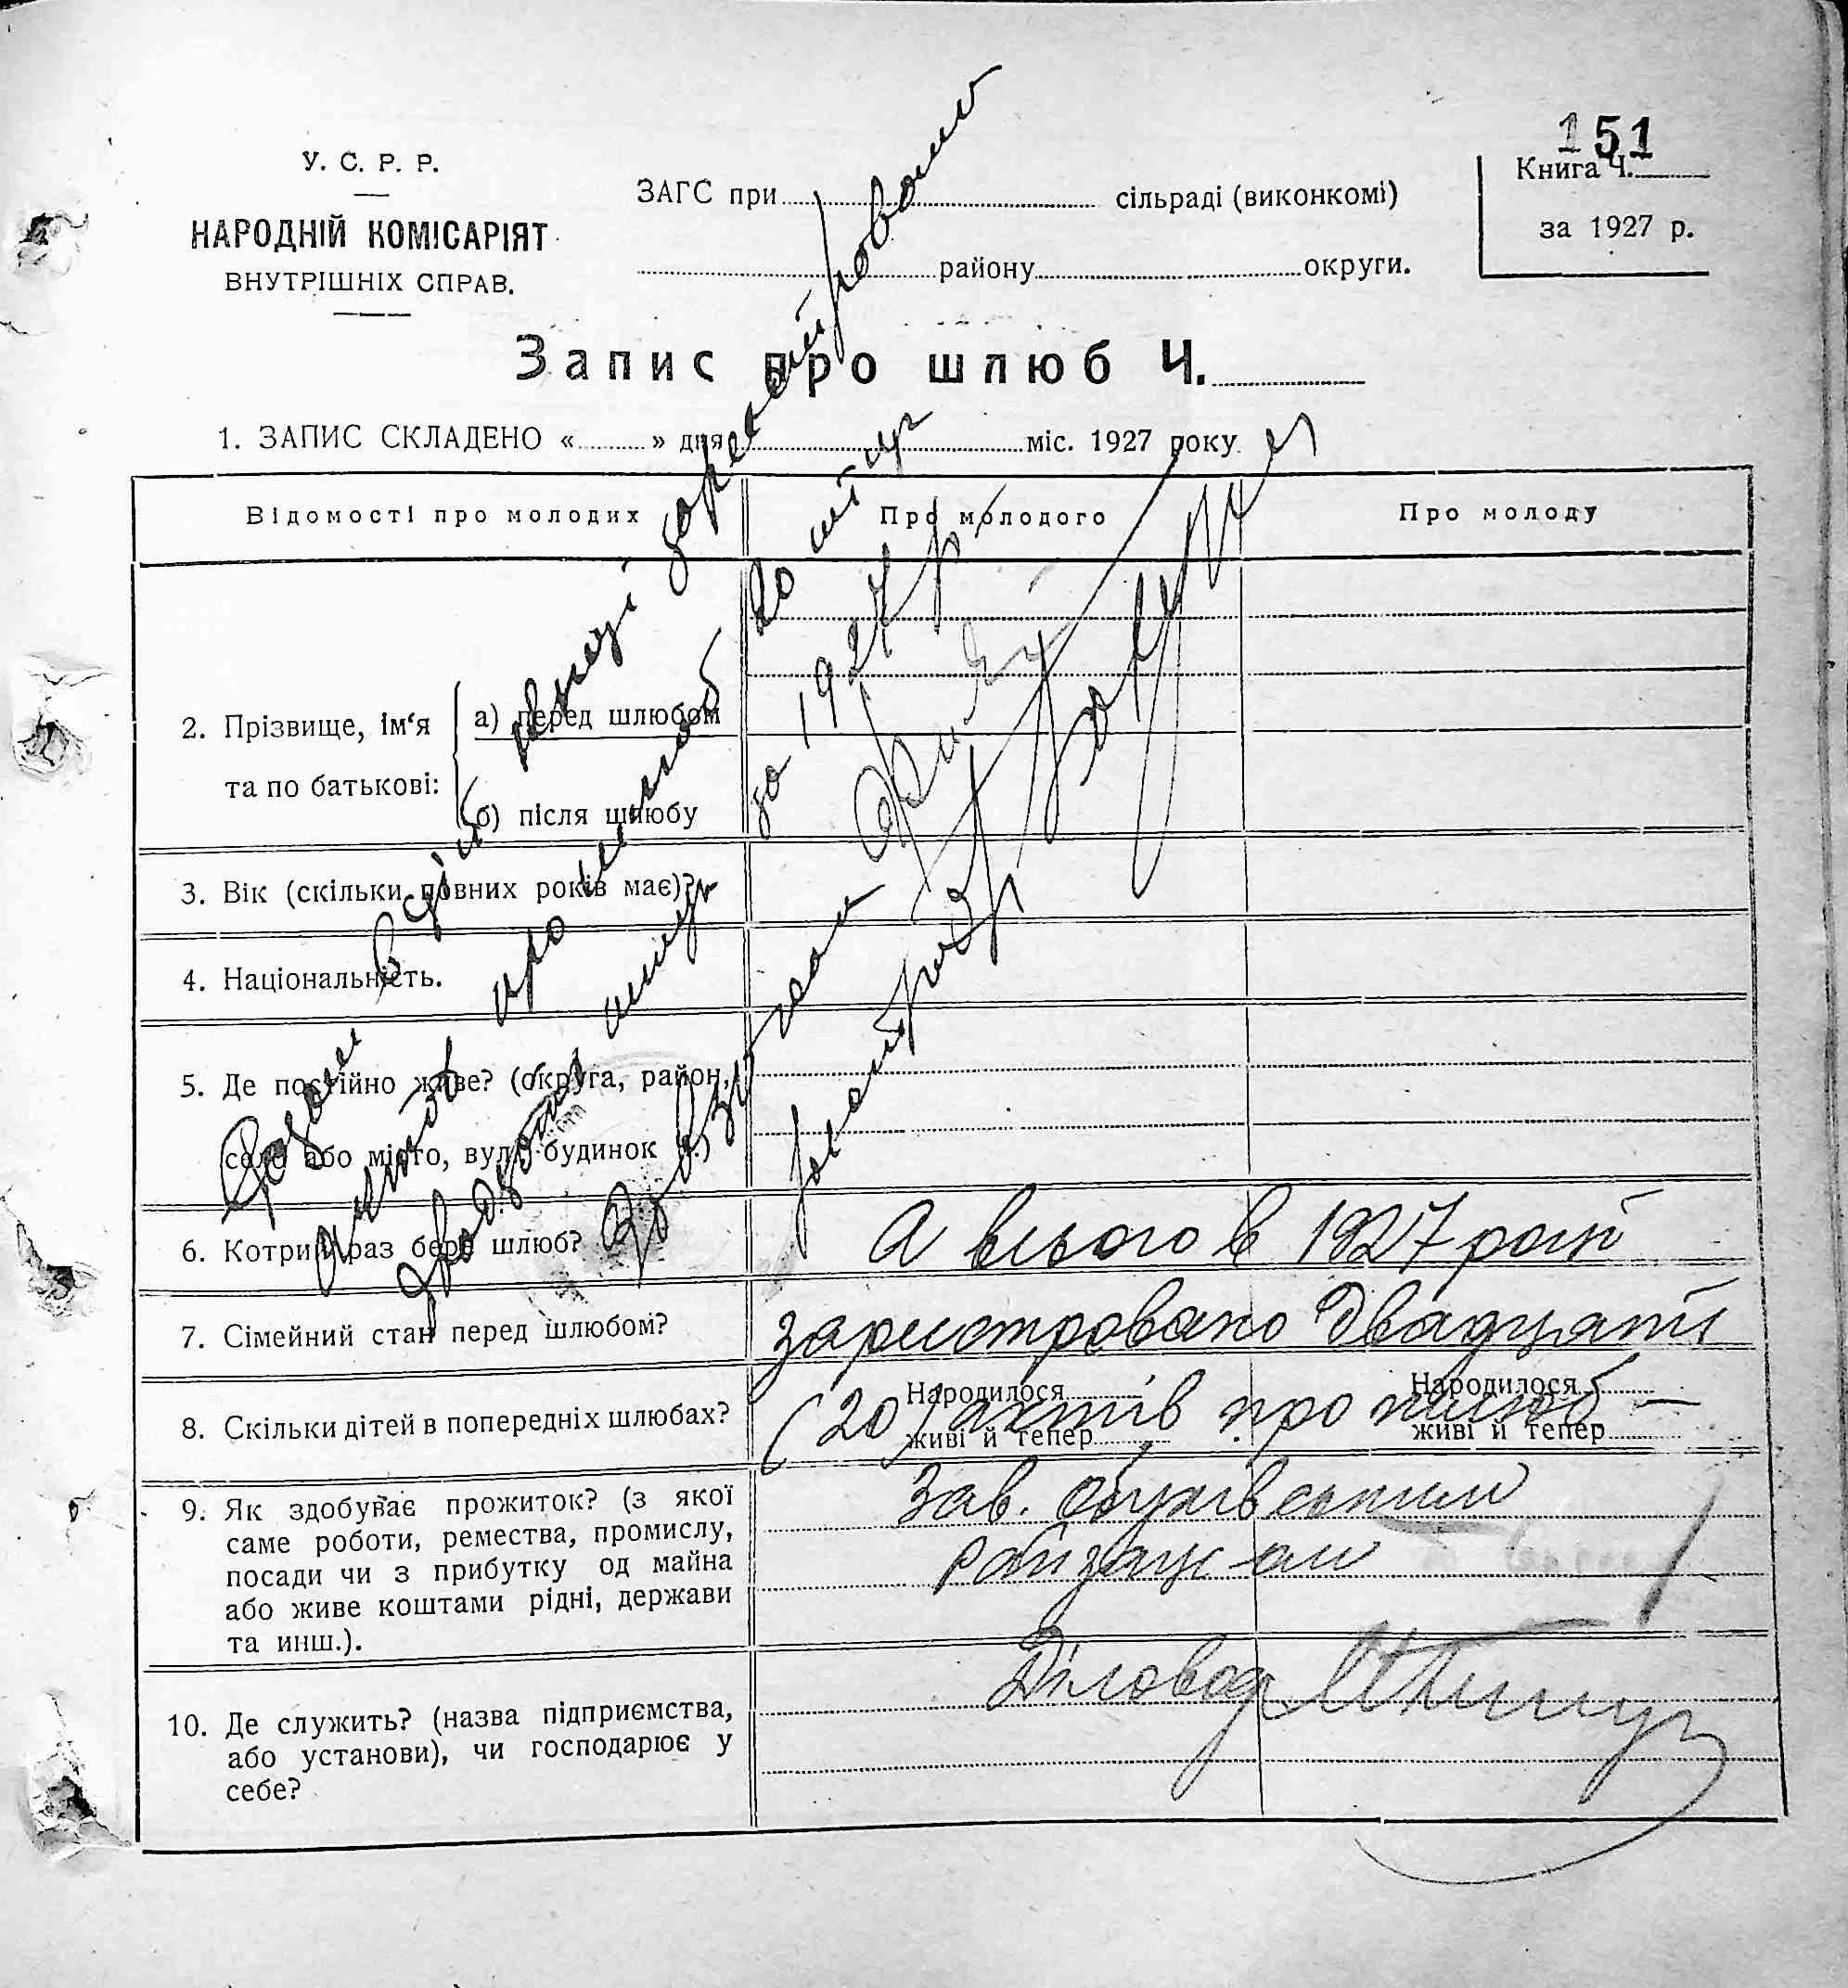 151
У. С. Р. Р.
НАРОДНІЙ КОМІСАРІЯТ
ВНУТРІШНІХ СПРАВ.
ЗАГС при сільраді (виконкомі)
району округи.
Книга Ч.
за 1927 р.
Запис про шлюб Ч.
1. ЗАПИС СКЛАДЕНО « » дня міс. 1927 року
Відомості про молодих
Про молодого
Про молоду
2. Прізвище, ім‘я
та по батькові:
а) перед шлюбом
б) після шлюбу
3. Вік (скільки повних років має)?
4. Національність.
5. Де постійно живе? (округа, район,
село або місто, вул., будинок ч.)
6. Котрий раз бере шлюб?
7. Сімейний стан перед шлюбом?
8. Скільки дітей в попередніх шлюбах?
Народилося
живі й тепер
Народилося
живі й тепер
9. Як здобуває прожиток? (з якої
саме роботи, ремества, промислу,
посади чи з прибутку од майна
або живе коштами рідні, держави
та инш.).
10. Де служить? (назва підприємства,
або установи), чи господарює у
себе?
Разом в цій книзі зареєстровано
актов про шлюб 20 штук
двадцять штук за 1927 р
А всього в 1927 році
зареєстровано двадцять
(20) актів про шлюб —
Зав. Обухівським
Діловод